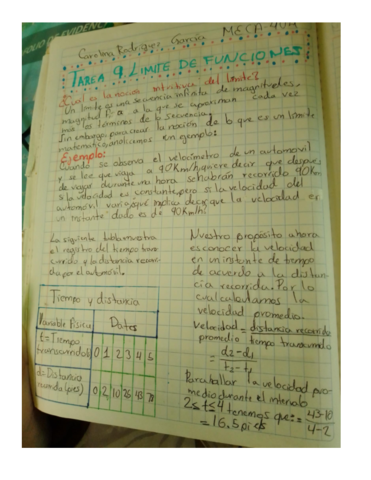 MECA 4AM
Carolina Rodriguez Garcia
TAREA 9. LIMITE DE FUNCIONES
¿Cual es la noción intuitiva del limite?
Un limite es una secuencia infinita de magnitudes,
magnitud a la que se aproximan cada vez
más los terminos de la secuencia.
Sin embargo, para crear la noción de lo que es un limite
matematico analicemos en ejemplo:
Ejemplo:
Cuando se observa el velocimetro de un automovil
y se lee que viaja a 90Km/h, quiere decir que despues
de viajar durante una hora se habrán recorrido 90Km
si la velocidad es constante, pero si la velocidad del
automovil varia, qué implica decir que la velocidad en
un instante dado es de 90Km/h?
La siguiente tabla muestra
el registro del tiempo trans
currido y la distancia recorri
da por el automovil.
Tiempo y distancia
Variable Fisica Datos
t = Tiempo
transcurrido(s) 0 1 2 3 4 5
d = Distancia
recorrida (pies) 0 2 10 25 43 78
Nuestro propósito ahora
es conocer la velocidad
en un instante de tiempo
de acuerdo a la distan-
cia recorrida. Por lo
cual calculamos la
velocidad promedio.
Velocidad = distancia recorrida
promedio tiempo transcurrido
= d2 - d1
t2 - t1
Para hallar la velocidad pro-
medio durante el intervalo
2 ≤ t ≤ 4 tenemos que: = 43-10
4-2
= 16.5 pies